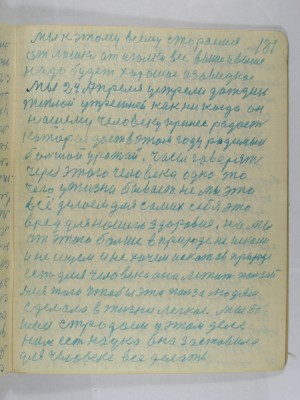 мы к этому всему стараемся
181
от лешка от иголки все выше и выше
надо будет хорошое и завидное
Мы 24 Апреля встрели дождик
теплой утрешней как ни когда он
нашему человеку принес радост
которая даст в этом году родитса
большой урожай. Часи говорят
через этого человека одно это
чего у жизни бывает не мы это
всё делаем для самих себя это
вред для нашего здоровия. на мы
от этого больше в природе не имеем
и не ищем и не хочим искат а в природе
ест для человека она лежит
для того чтобы эта польза людям
сделала в жизни легкое. мы бо-
леем страдаем у этом деле
нам ест наука она заставила
для человека все делать